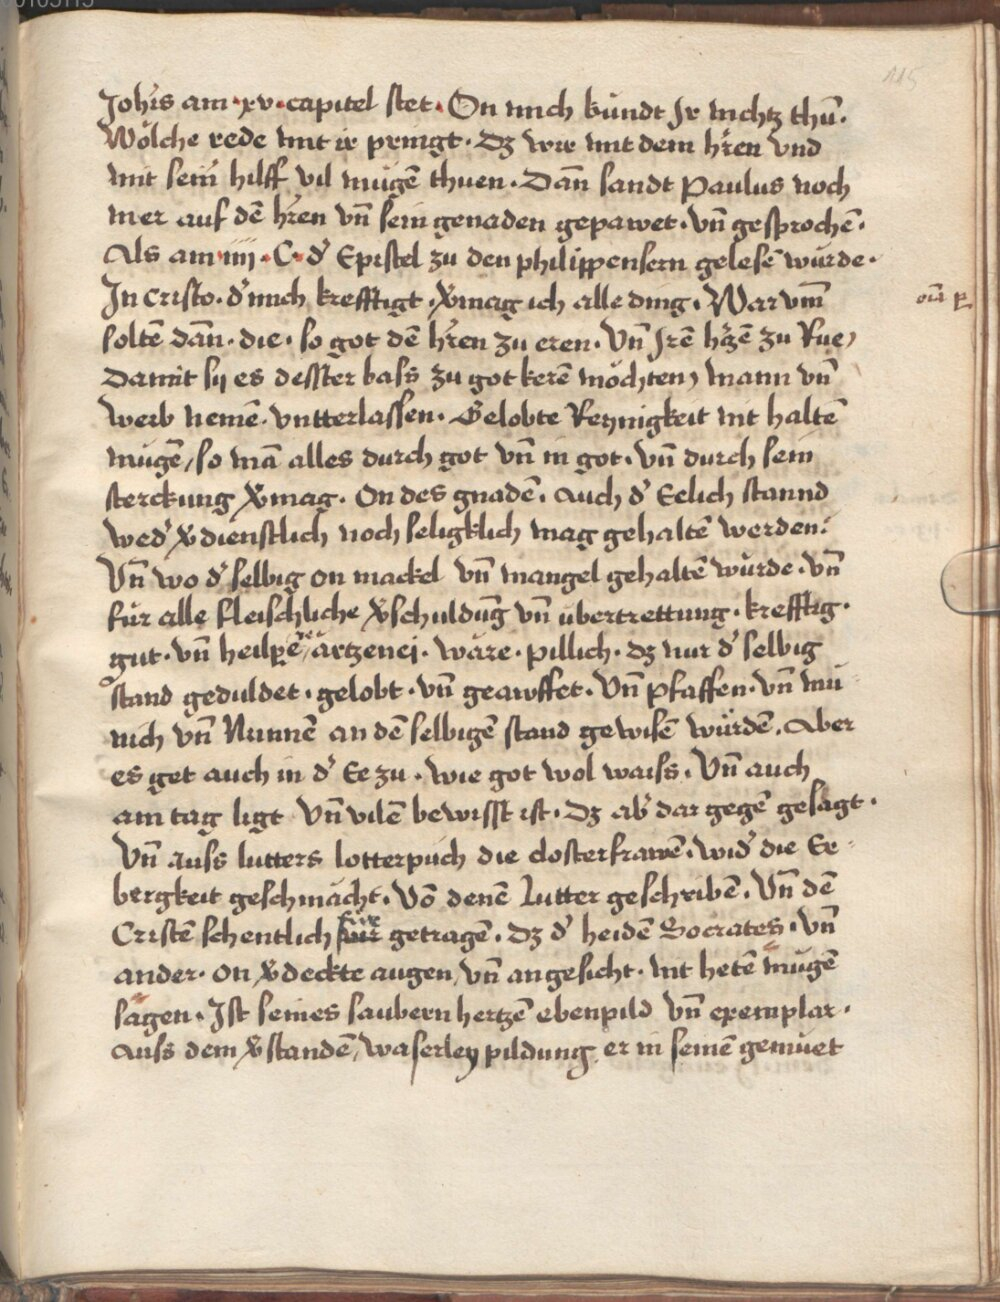 115
Joh̄is am · xv · capitel stet · On mich kündt Jr nichtz thū ·
Wölche rede mit ir pringt · Dz wir mit dem hr̄en vnd
mit sein̄ hilff vil mügē thuen · Dan̄ sandt Paulus noch
mer auf dē hr̄en vn̄ sein genaden gepawet · vn̄ gesprochē ·
Als am · iiij · C · d' Epistel zu den philippensern gelesē würde ·
In cristo · d' mich krefftigt · v̾mag ich alle ding · War vm̄
soltē dan̄ · die · so got dē hr̄en zu eren · Vn̄ Jrē hr̄zē zu Rue /
Damit sij es desster bass zu got kerē möchten / mann vn̄
weib nemē · vntterlassen · Gelobte Reynigkeit nit haltē
mügē / so mā alles durch got vn̄ in got · vn̄ durch sein
sterckung v̾mag · On des gnadē · auch d' Eelich stannd
wed' v̾dienstlich noch seligklich mag gehaltē werden ·
Vn̄ wo d' selbig on mackel vn̄ mangel gehaltē würde · vn̄
für alle fleischliche v̾schuldūg vn̄ übertrettung · krefftig ·
gut · vn̄ heilpē / ärtzenej · wäre · pillich · dz nur d' selbig
stand geduldet · gelobt · vn̄ geawffet · Vn̄ pfaffen · vn̄ mü
nich vn̄ Nunnē an dē selbigē stand gewisē würdē · Aber
es get auch in d' Ee zu · wie got wol waiss · Vn̄ auch
am tag ligt vn̄ vilē bewisst ist · Dz ab' dar gegē gesagt ·
Vn̄ auss lutters lotterpuch die closterfrawē · wid' die Ee
bergkeit geschmächt · Vō denē Lutter geschribē · Vn̄ dē
Cristē schentlich für getragē · Dz d' heidē Socrates · vn̄
ander · on v̾deckte augen vn̄ angesicht · nit hetē mügē
sagen · Ist seines saubern hertzē ebenpild vn̄ exemplar ·
Auss dem v̾standē / waserley pildung er in seinē gemüet